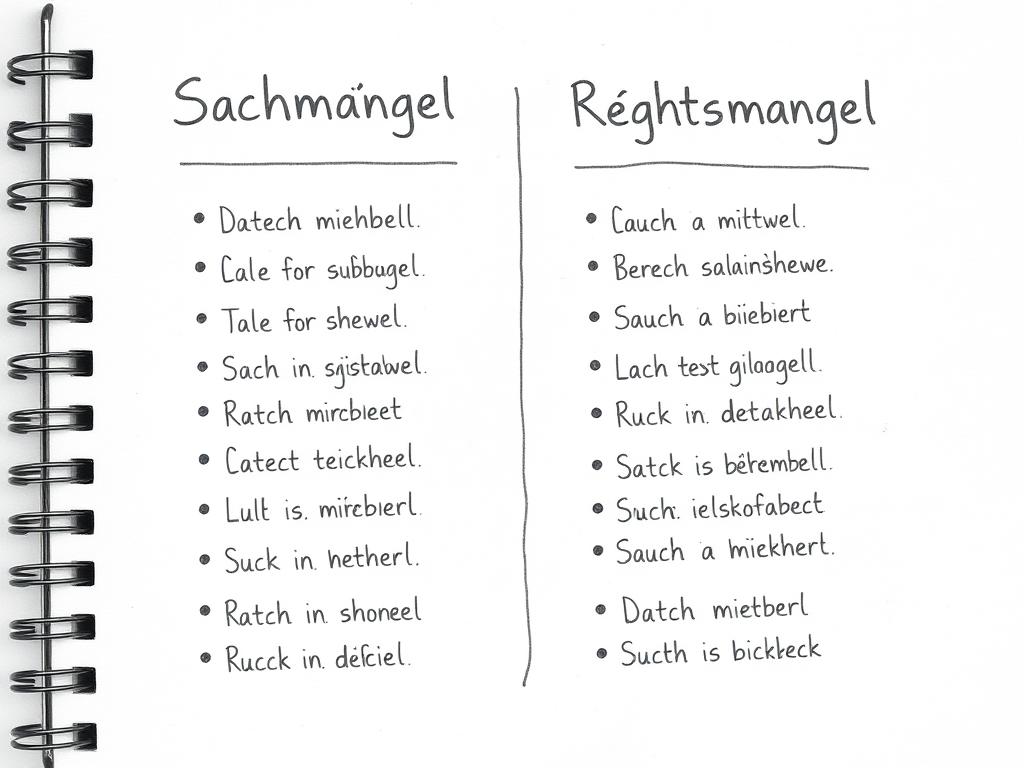 Sachmängel
Datech miehbell.
Cale for subbugel.
Tale for shewel.
Sach in.
Ratch mircbleet
Catect teickheel.
Lult is. mircbierl.
Suck in. hetherl.
Ratch in. shoneel
Rucck in. défciel.
Réghtsmangel
Cauch a mittwel.
Berech salainshewe.
Sauch a biiebiert
Lach test giloogell.
Ruck in. detakheel.
Satck is bêrembell.
Such. ielskofabect
Sauch a miekhert.
Datch mietberl
Sucth is bickteck